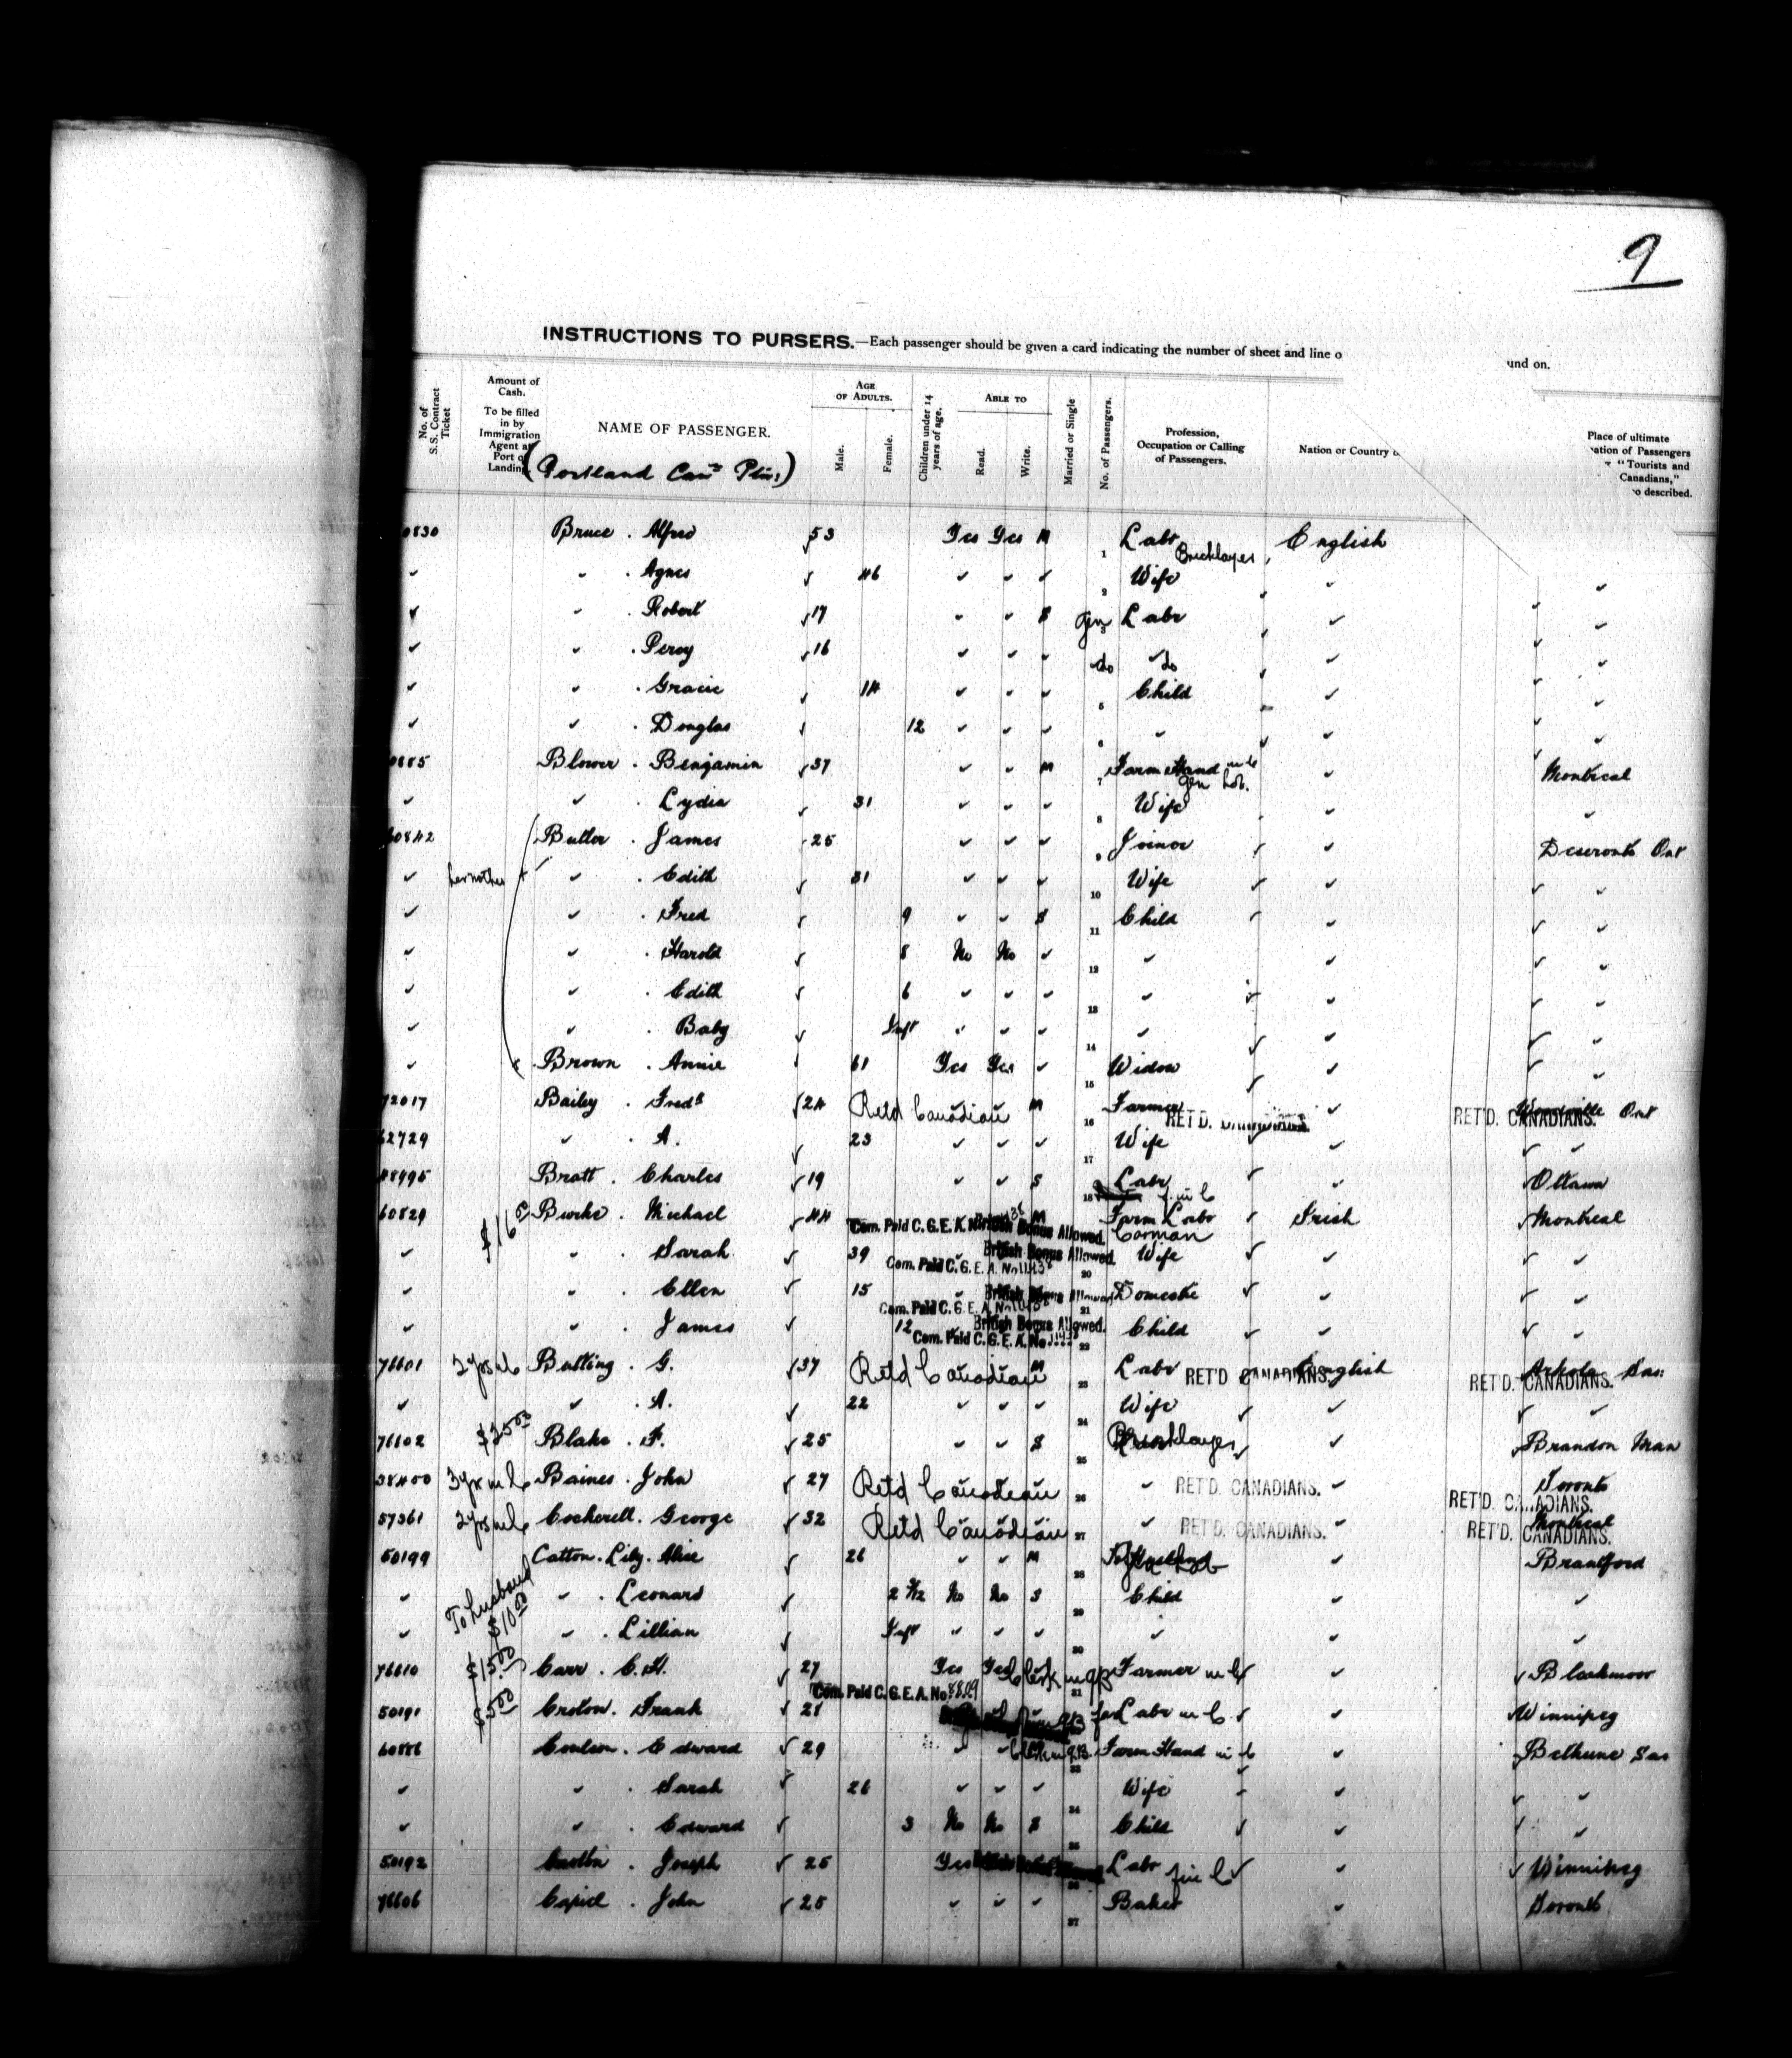 9
INSTRUCTIONS TO PURSERS.—Each passenger should be given a card indicating the number of sheet and line o
und on.
No. of S.S. Contract Ticket
Amount of Cash.
To be filled in by Immigration Agent at Port of Landing
NAME OF PASSENGER.
AGE OF ADULTS.
Male.
Female.
Children under 14 years of age.
ABLE TO
Read.
Write.
Married or Single
No. of Passengers.
Profession, Occupation or Calling of Passengers.
Nation or Country o
Place of ultimate
ation of Passengers
"Tourists and
Canadians,"
o described.
(Portland
0830 Bruce . Alfred √53 Yes Yes M 1 Labr Bricklayer English
✓ ✓ . Agnes √ 46 ✓ ✓ ✓ 2 Wife ✓ ✓
✓ ✓ . Robert √17 ✓ ✓ S Gen 3 Labr ✓ ✓
✓ ✓ . Percy √16 ✓ ✓ ✓ do do ✓ ✓
✓ ✓ . Gracie √ 14 ✓ ✓ ✓ 5 Child ✓ ✓
✓ ✓ . Douglas √ 12 ✓ ✓ ✓ 6 ✓ ✓ ✓
0885 Blower . Benjamin √37 ✓ ✓ M 7 Farm Hand Gen Lab. ✓ Montreal
✓ ✓ . Lydia √ 31 ✓ ✓ ✓ 8 Wife ✓ ✓
60842 Butler . James 25 ✓ ✓ ✓ 9 Joiner ✓ Deseronto Ont
✓ her mother ✓ . Edith √ 31 ✓ ✓ ✓ 10 Wife ✓ ✓
✓ ✓ . Fred √ 9 ✓ ✓ S 11 Child ✓ ✓
✓ ✓ . Harold √ 8 No No ✓ 12 ✓ ✓ ✓
✓ ✓ . Edith √ 6 ✓ ✓ ✓ 13 ✓ ✓ ✓
✓ ✓ . Baby √ Inft ✓ ✓ ✓ 14 ✓ ✓ ✓
✓ Brown . Annie 61 Yes Yes ✓ 15 Widow ✓ ✓
72017 Bailey . Fredk √24 Retd Canadian M 16 Farmer RET'D. CANADIANS. ✓ RET'D. CANADIANS. Ont
62729 ✓ . A. √ 23 ✓ ✓ ✓ 17 Wife ✓ ✓
48495 Bratt . Charles √19 ✓ ✓ S 18 Labr ✓ Ottawa
60829 $16 Burke . Michael √44 Com. Paid C. G. E. A. No British Bonus Allowed. M Farm Labr Carman Irish Montreal
✓ ✓ . Sarah √ 39 Com. Paid C. G. E. A. No British Bonus Allowed. 20 Wife ✓ ✓
✓ ✓ . Ellen √ 15 Com. Paid C. G. E. A. No British Bonus Allowed. 21 Domestic ✓ ✓
✓ ✓ . James √ 12 Com. Paid C. G. E. A. No British Bonus Allowed. 22 Child ✓ ✓
76601 2 yrs in C Batting . G. √37 Retd Canadian M 23 Labr RET'D CANADIANS. English RET'D. CANADIANS. Arkola Sas.
✓ ✓ . A. √ 22 ✓ ✓ ✓ 24 Wife ✓ ✓
76602 $25.00 Blake . F. √25 ✓ ✓ S 25 Bricklayer ✓ Brandon Man
38400 3 yrs in C Baines . John √27 Retd Canadian 26 ✓ RET'D. CANADIANS. ✓ Toronto RET'D. CANADIANS.
57361 2 yrs in C Cockerell . George √32 Retd Canadian 27 ✓ RET'D. CANADIANS. ✓ Montreal RET'D. CANADIANS.
50199 Catton . Lily . Alice √ 26 ✓ ✓ M 28 To Husband Gen Lab ✓ Brantford
✓ To husband $10.00 ✓ . Leonard √ 2 No No S 29 Child ✓ ✓
✓ ✓ . Lillian √ Inft ✓ ✓ ✓ 30 ✓ ✓ ✓
76610 $15.00 Carr . C. H. √27 Yes Yes Clerk 31 Farmer in C ✓ Blackmoor
50191 $5.00 Croton . Frank √21 Com. Paid C. G. E. A. No. Labr in C ✓ Winnipeg
60886 Coulson . Edward √29 ✓ ✓ M 33 Farm Hand in C ✓ Bethune Sas
✓ ✓ . Sarah √ 26 ✓ ✓ ✓ 34 Wife ✓ ✓
✓ ✓ . Edward √ 3 No No S 35 Child ✓ ✓
50192 . Joseph √25 Yes 36 Labr ✓ Winnipeg
76606 . John √25 ✓ ✓ ✓ 37 Baker ✓ Toronto